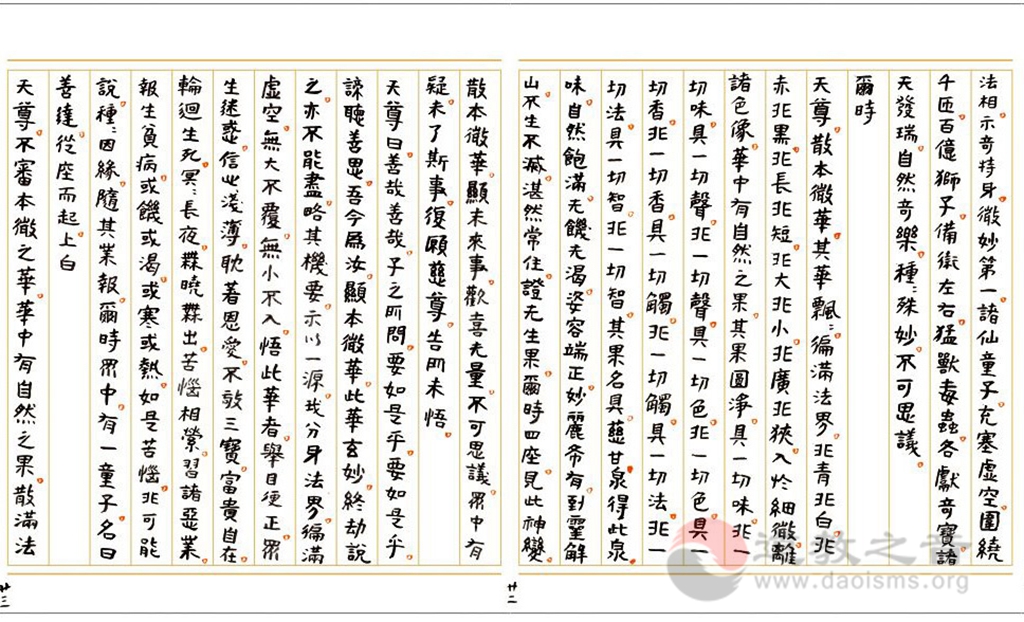 法相示奇持身微妙第一諸仙童子充塞虛空圍繞
千匝百億獅子備衛左右猛獸毒蟲各獻奇寶諸
天發瑞自然奇樂種〻殊妙不可思議
爾時
天尊散本微華其華飄〻徧滿法界非青非白非
赤非黑非長非短非大非小非廣非狹入於細微離
諸色像華中有自然之果其果圓淨具一切味非一
切味具一切聲非一切聲具一切色非一切色具一
切香非一切香具一切觸非一切觸具一切法非一
切法具一切智非一切智其果名具慈甘泉得此泉
味自然飽滿无饑无渴姿容端正妙麗希有到靈解
山不生不滅湛然常住證无生果爾時四座見此神變
廿二
散本微華顯未來事歡喜无量不可思議眾中有
疑未了斯事復願慈尊告所未悟
天尊曰善哉善哉子之所問要如是乎要如是乎
諦聽善思吾今為汝顯本微華此華玄妙終劫說
之亦不能盡略其機要示以一源我分身法界徧滿
虛空無大不覆無小不入悟此華者舉目便正眾
生迷惑信心淺薄耽著恩愛不敬三寶富貴自在
輪迴生死冥〻長夜羅曉羅出苦惱相縈習諸惡業
報生負病或饑或渴或寒或熱如是苦惱非可能
說種〻因緣隨其業報爾時眾中有一童子名曰
善達從座而起上白
天尊不審本微之華華中有自然之果散滿法
廿三
道教之音
www.daoisms.org